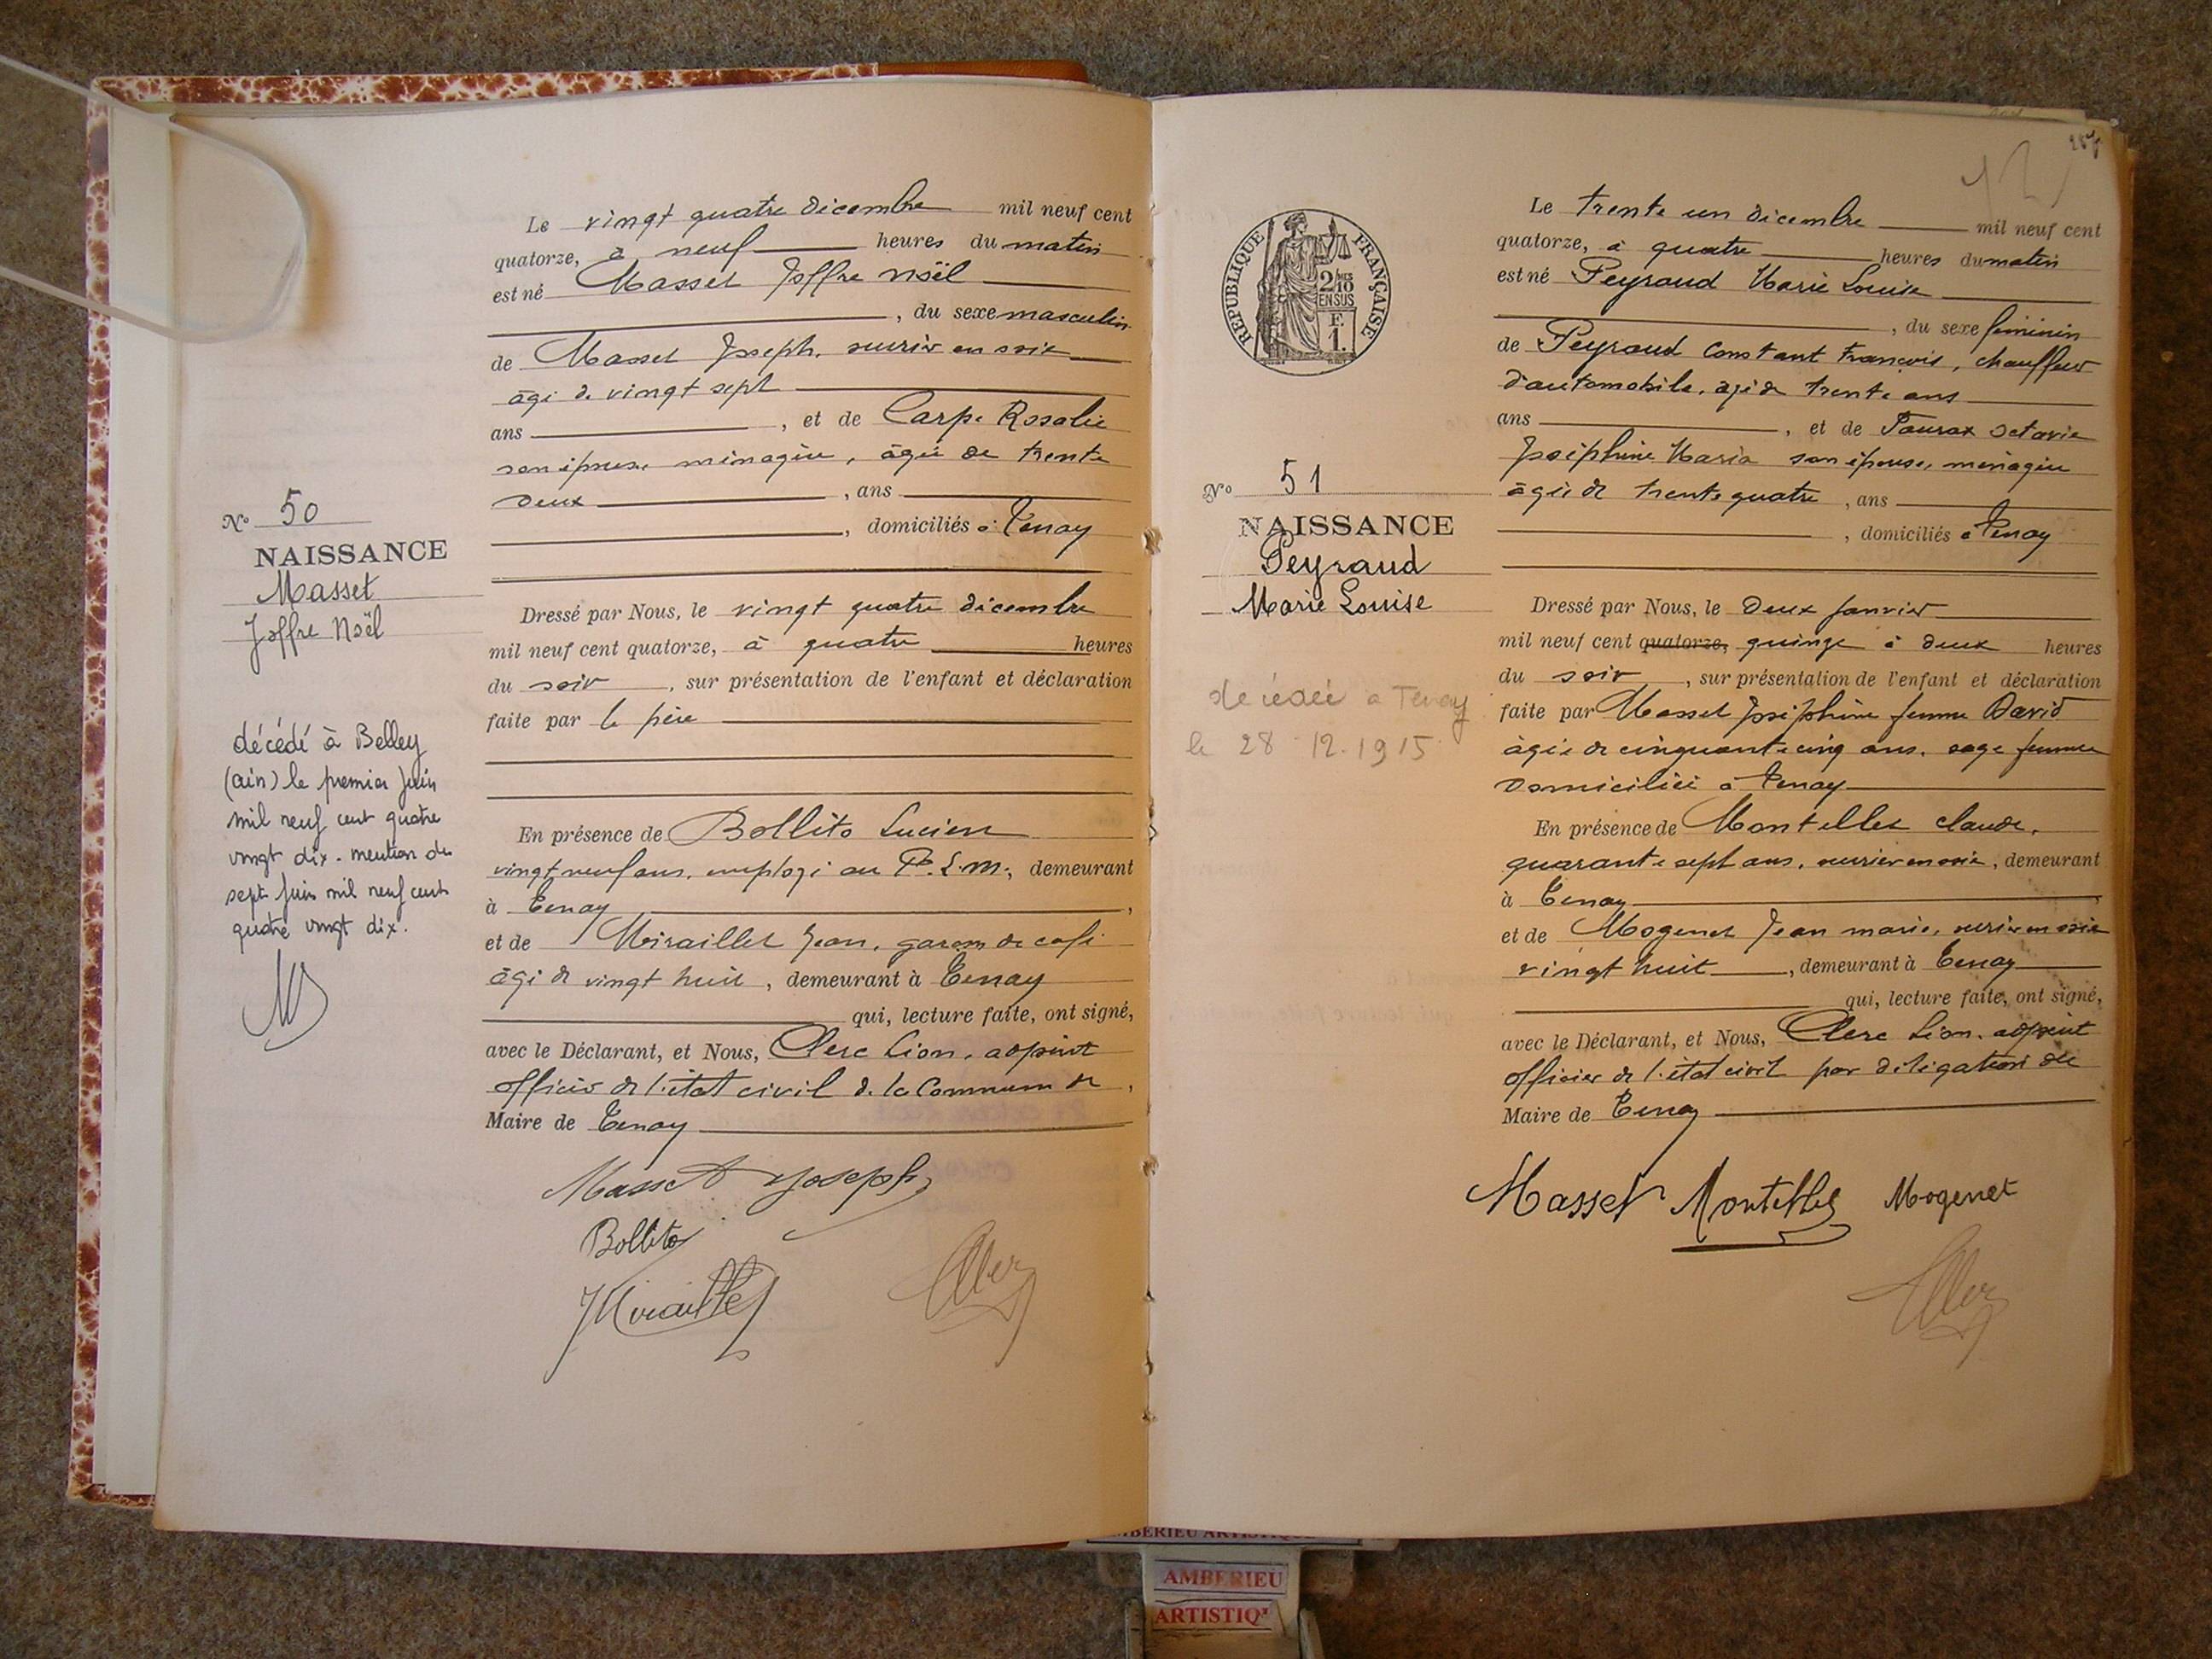 Le vingt quatre décembre mil neuf cent
quatorze, à neuf heures du matin
est né Masset Joffre Noël
, du sexe masculin
de Masset Joseph, ouvrier en soie
âgé de vingt sept
ans , et de Carpe Rosalie
son épouse, ménagère, âgée de trente
deux , ans
, domiciliés à Tenay
Nº 50
NAISSANCE
Masset
Joffre Noël
décédé à Belley
(ain) le premier juin
mil neuf cent quatre
vingt dix. mention du
sept juin mil neuf cent
quatre vingt dix.
Dressé par Nous, le vingt quatre décembre
mil neuf cent quatorze, à quatre heures
du soir , sur présentation de l'enfant et déclaration
faite par le père
En présence de Bollito Lucien
vingt neuf ans, employé au P.L.M., demeurant
à Tenay ,
et de Miraillet Jean, garçon de café
âgé de vingt huit , demeurant à Tenay
qui, lecture faite, ont signé,
avec le Déclarant, et Nous, Clerc Léon, adjoint
officier de l'état civil de la Commune de ,
Maire de Tenay
Masset Joseph
Bollito
JMiraillet
Clerc
RÉPUBLIQUE FRANÇAISE
2/10 EN SUS
F. 1.
Nº 51
NAISSANCE
Peyraud
Marie Louise
decédée a Tenay
le 28.12.1915
Le trente un décembre mil neuf cent
quatorze, à quatre heures du matin
est né Peyraud Marie Louise
, du sexe féminin
de Peyraud Constant François, chauffeur
d'automobile, agé de trente ans
ans , et de Octavie
Joséphine Maria son épouse, ménagère
âgée de trente quatre , ans
, domiciliés à Tenay
Dressé par Nous, le deux janvier
mil neuf cent quatorze, quinze à deux heures
du soir , sur présentation de l'enfant et déclaration
faite par Masset Joséphine femme David
âgée de cinquante cinq ans, sage femme
domiciliée à Tenay
En présence de Montellet Claude,
quarante sept ans, ouvrier en soie, demeurant
à Tenay ,
et de Mogenet Jean marie, ouvrier en soie
vingt huit , demeurant à Tenay
qui, lecture faite, ont signé,
avec le Déclarant, et Nous, Clerc Léon, adjoint
officier de l'état civil par délégation du
Maire de Tenay
Masset Montellet Mogenet
Clerc
AMBERIEU ARTISTIQUE
AMBERIEU
ARTISTIQ